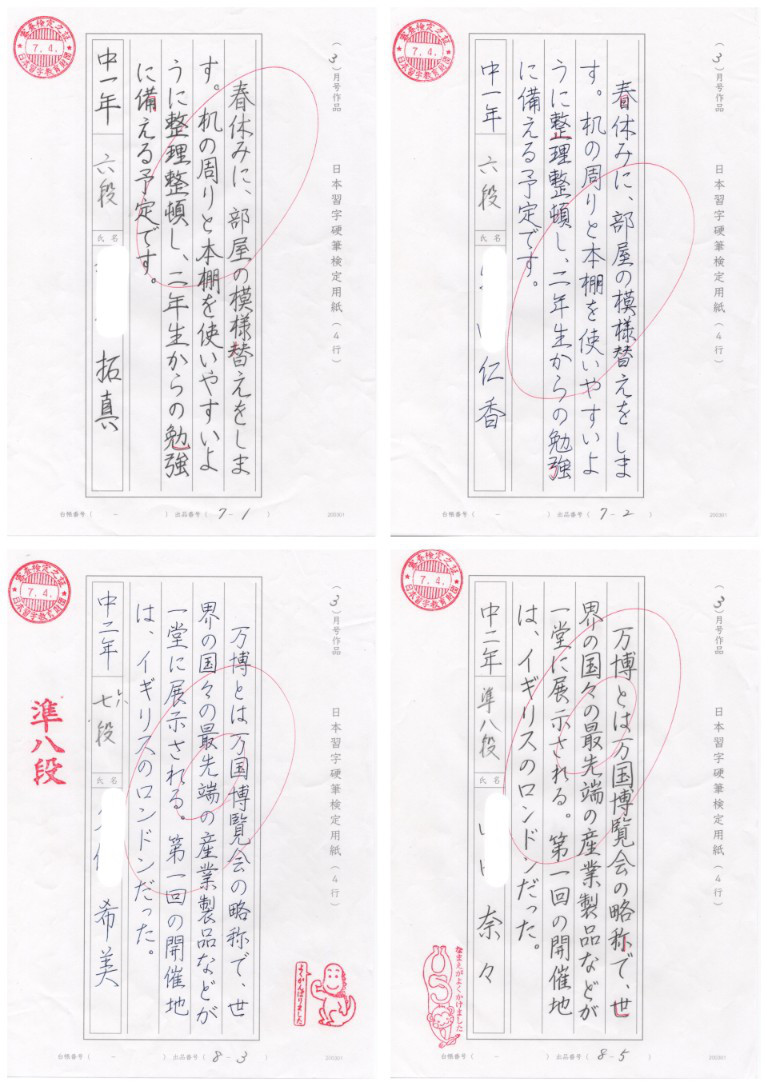 （3）月号作品 日本習字硬筆検定用紙（4行）
春休みに、部屋の模様替えをしま
す。机の周りと本棚を使いやすいよ
うに整理整頓し、二年生からの勉強
に備える予定です。
中一年 六段 氏名 拓真
審査検定之証 7.4. 日本習字教育財団
台帳番号（ － ） 出品番号（ 7-1 ）
（3）月号作品 日本習字硬筆検定用紙（4行）
春休みに、部屋の模様替えをしま
す。机の周りと本棚を使いやすいよ
うに整理整頓し、二年生からの勉強
に備える予定です。
中一年 六段 氏名 仁香
審査検定之証 7.4. 日本習字教育財団
台帳番号（ － ） 出品番号（ 7-2 ）
（3）月号作品 日本習字硬筆検定用紙（4行）
万博とは万国博覧会の略称で、世
界の国々の最先端の産業製品などが
一堂に展示される。第一回の開催地
は、イギリスのロンドンだった。
中二年 七段 氏名 希美
審査検定之証 7.4. 日本習字教育財団
準八段
よくがんばりました
台帳番号（ － ） 出品番号（ 8-3 ）
（3）月号作品 日本習字硬筆検定用紙（4行）
万博とは万国博覧会の略称で、世
界の国々の最先端の産業製品などが
一堂に展示される。第一回の開催地
は、イギリスのロンドンだった。
中二年 準八段 氏名 奈々
審査検定之証 7.4. 日本習字教育財団
なまえがよくかけました
台帳番号（ － ） 出品番号（ 8-5 ）